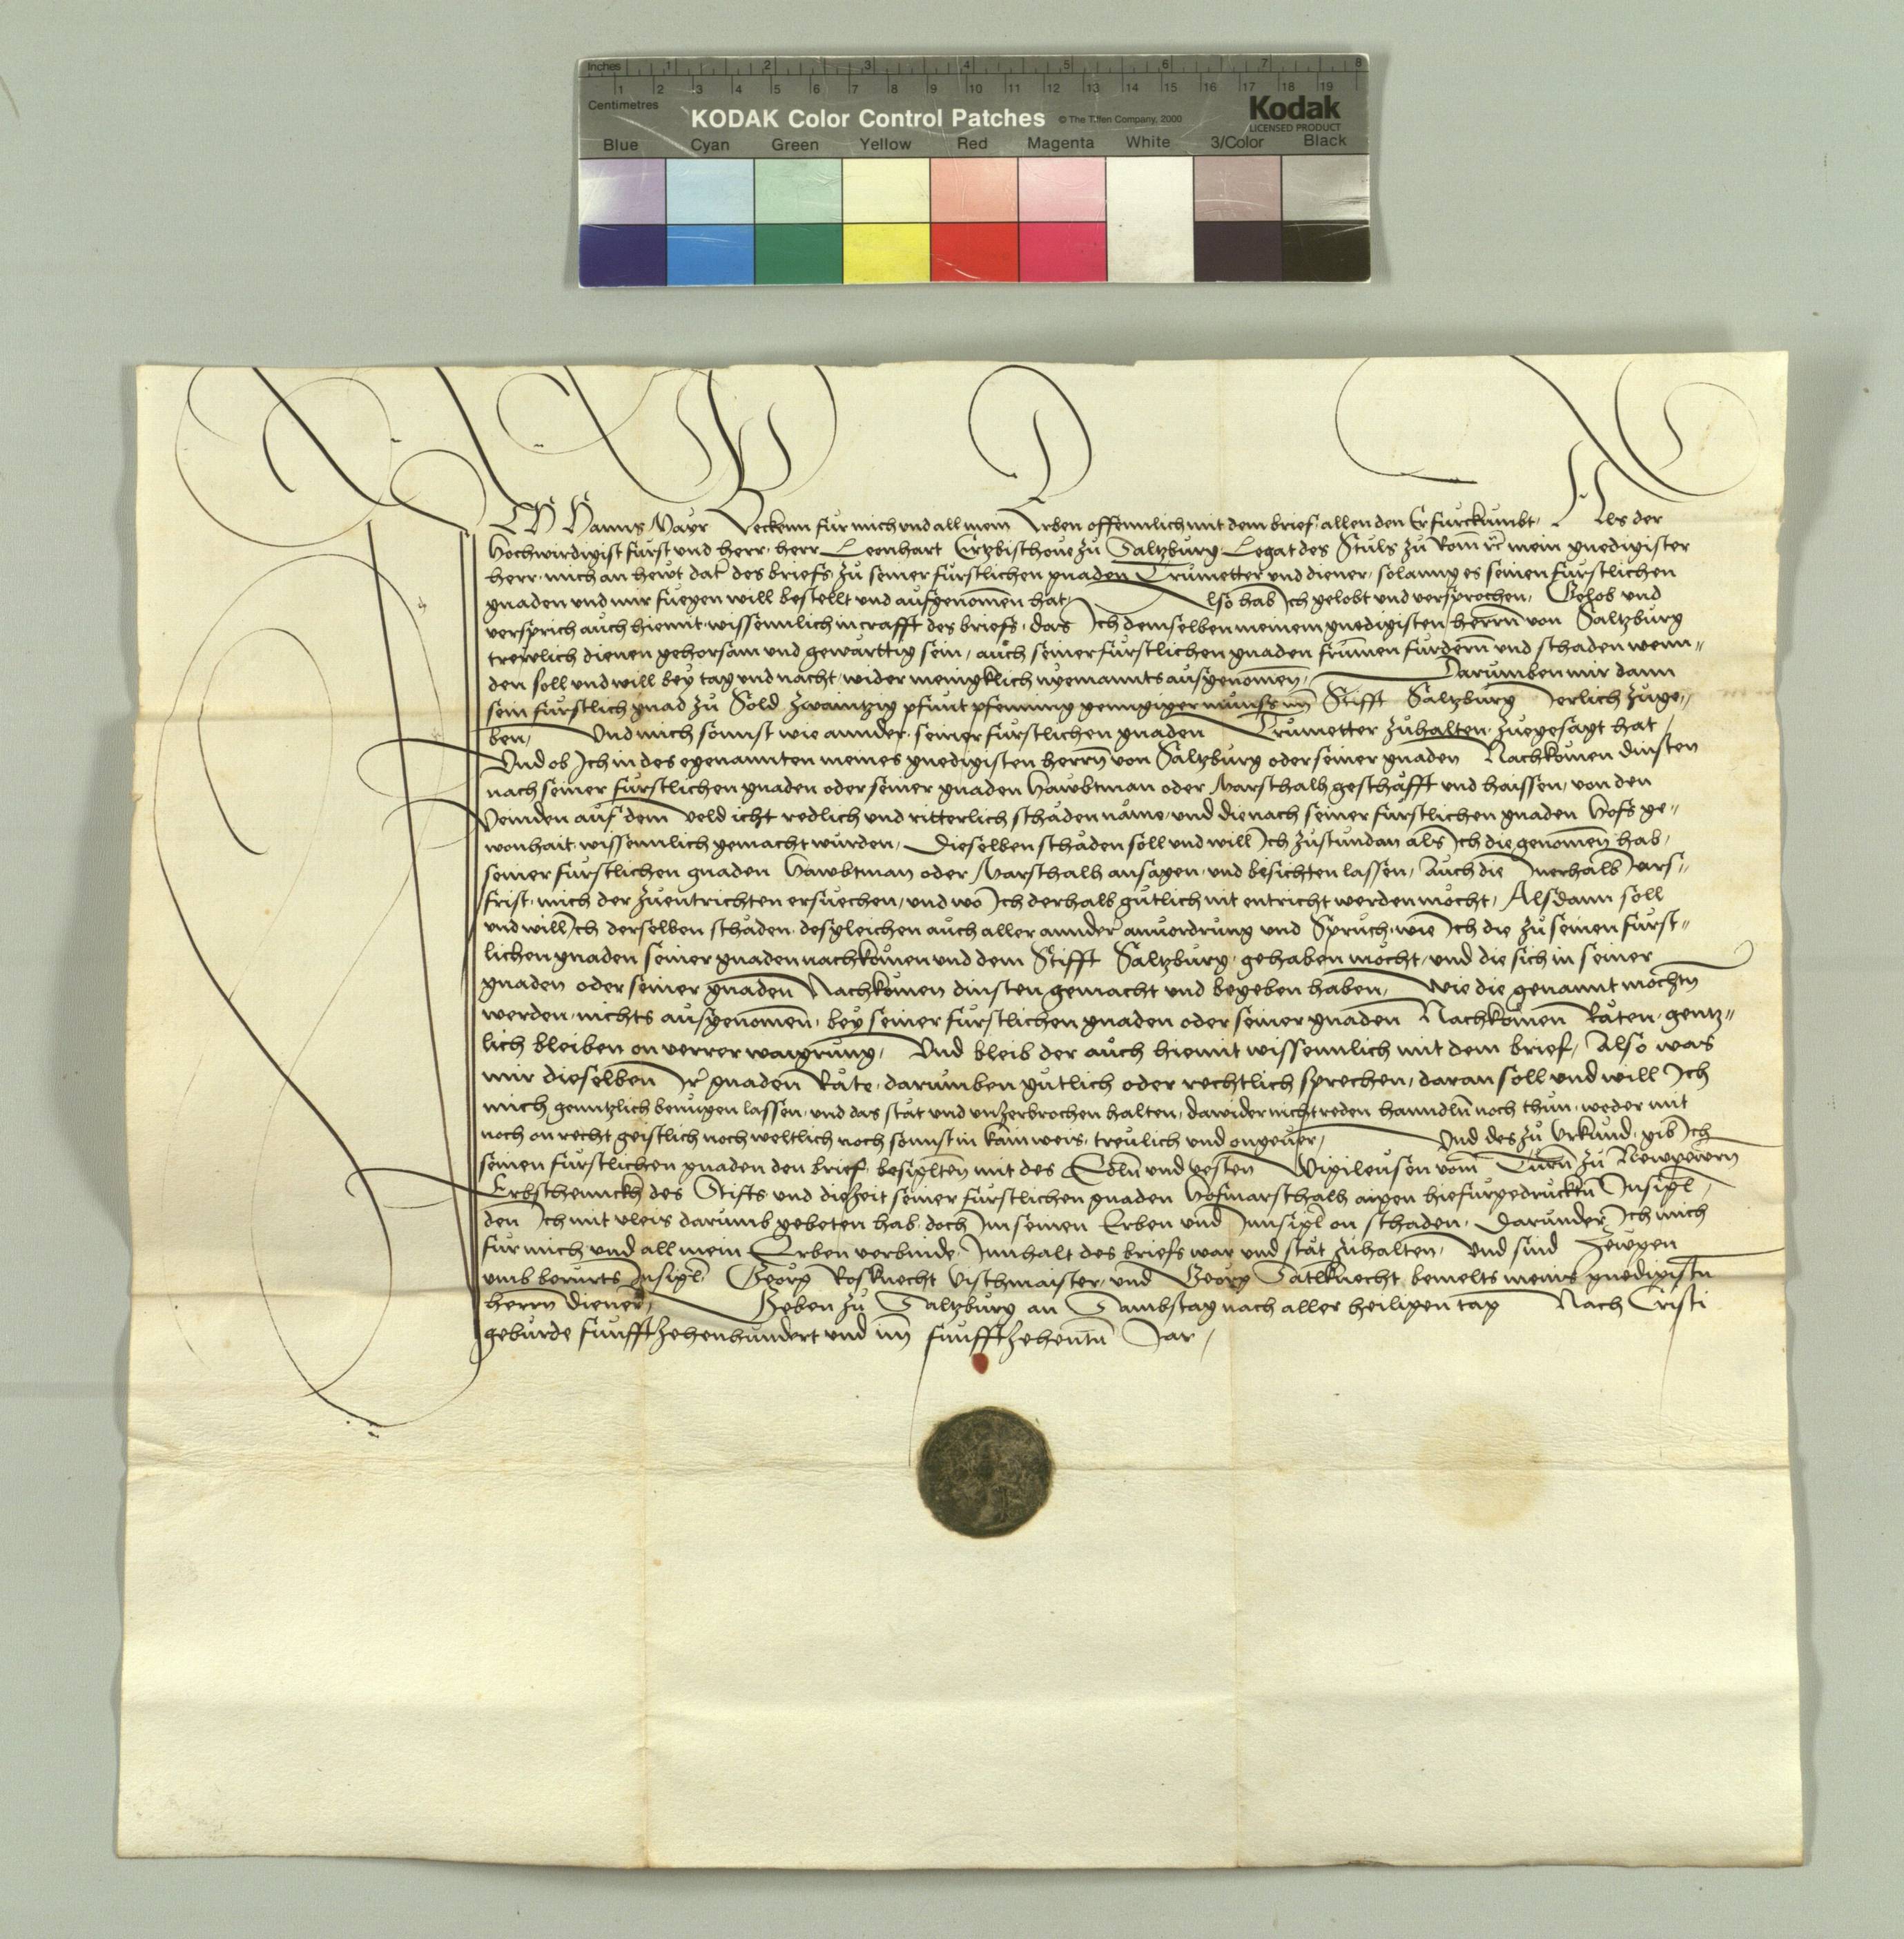 Inches 1 2 3 4 5 6 7 8
Centimetres 1 2 3 4 5 6 7 8 9 10 11 12 13 14 15 16 17 18 19
KODAK Color Control Patches © The Tiffen Company, 2000 Kodak
LICENSED PRODUCT
Blue Cyan Green Yellow Red Magenta White 3/Color Black
ICH Hanns Mayr Bekenn fur mich und all mein Erben offennlich mit dem brief, allen den Er furckumbt, Als der
Hochwirdigist furst und herr, herr Leonhart Ertzbischoue zů Saltzburg Legat des Stuls zu Rom rc mein gnedigister
herr, mich an hewt dat des briefs zů seiner furstlichen gnaden Trumetter und diener, solanng es seinen furstlichen
gnaden und mir fuegen will bestellt und aufgenomen hat, Also hab Ich gelobt und versprochen, Gelob und
versprich auch hiemit wissenntlich in crafft des briefs, das Ich demselben meinem gnedigisten herrn von Saltzburg
trewlich dienen gehorsam und gewarttig sein, auch seiner furstlichen gnaden frumen furdern und schaden wenn=
den soll und will bey tag und nacht, wider menigklich nyemannts ausgenomen, Darumben mir dann
sein furstlich gnad zů Sold zwaintzig pfunt pfenning genngiger munss im Stifft Saltzburg Jerlich zuge=
ben, Und mich sonnst wie annder seiner furstlichen gnaden Trumetter zuhalten zuegesagt hat,
Und ob Ich in des egenannten meines gnedigisten herrn von Saltzburg oder seiner gnaden Nachkomen dinsten
nach seiner furstlichen gnaden oder seiner gnaden Hawbtman oder Marschalh geschäfft und haissen, von den
Veinden auf dem veld icht redlich und ritterlich schaden näme, und die nach seiner furstlichen gnaden Hofs ge=
wonhait wissenntlich gemacht wurden, Dieselben schäden soll und will Ich zustundan als Ich die genomen hab,
seiner furstlichen gnaden Hawbtman oder Marschalh ansagen, und besichten lassen, Auch die Innerhalb Jars
frist, mich der zuentrichten ersuechen, und wo Ich derhalb gutlich nit entricht werden möcht, Alsdann soll
und will Ich derselben schäden, desgleichen auch aller annder anuordrung und Spruch, wie Ich die zu seinen furst=
lichen gnaden seiner gnaden nachkomen und dem Stifft Saltzburg, gehaben möcht, und die sich in seiner
gnaden oder seiner gnaden Nachkomen dinsten gemacht und begeben haben, wie die genannt möchtn
werden, nichts ausgenomen, bey seiner furstlichen gnaden oder seiner gnaden Nachkomen Räten, gentz=
lich bleiben on verrer waigrung, Und bleib der auch hiemit wissenntlich mit dem brief, Also was
mir dieselben Ir gnaden Räte, darumben gutlich oder rechtlich sprechen, daran soll und will Ich
mich genntzlich benugen lassen, und das stät und unzerbrochen halten, dawider nicht reden hanndln noch thun, weder mit
noch on recht geistlich noch weltlich noch sonnst in kain weis, treulich und ongeuer, Und des zu Urkund, gib Ich
seinen furstlichen gnaden den brief, besiglten mit des Edln und vesten Wigileusen vom Turn zu Newpewrn
Erbschennckh des Stifts und diezeit seiner furstlichen gnaden Hofmarschalh aigen hiefurgedrucktn Insigl,
den Ich mit vleis darumb gebeten hab, doch Im seinen Erben und Innsigl on schaden, Darunder Ich mich
fur mich und all mein Erben verbinde, Innhalt des briefs war und stät zuhalten, Und sind Zewgen
umb berurts Insigl Georg Rosknecht Vischmaister, und Georg Satlknecht bemelts meins gnedigistn
herrn diener, Geben zu Saltzburg an Sambstag nach aller heiligen tag Nach Cristi
geburde funffzehenhundert und im funffzehentn Jar,